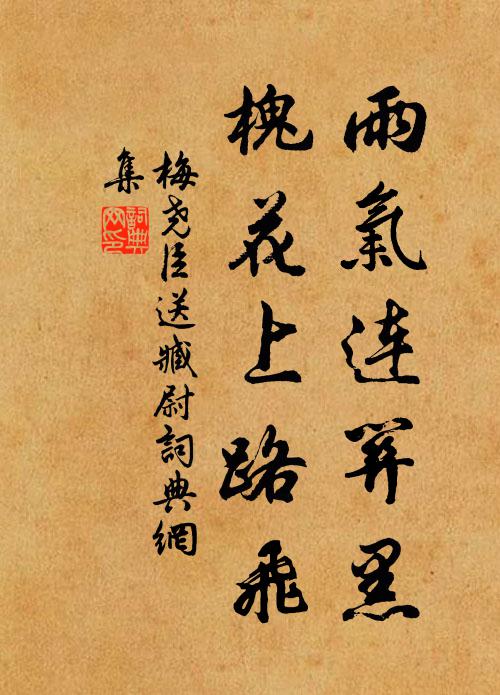 雨氣連關黑
槐花上路飛
梅堯臣送臧尉詞典網
集
詞典
网印